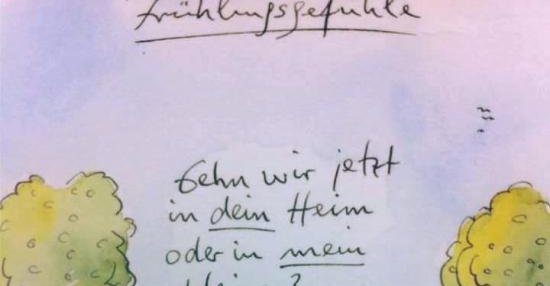 Frühlingsgefühle
Gehn wir jetzt
in dein Heim
oder in mein